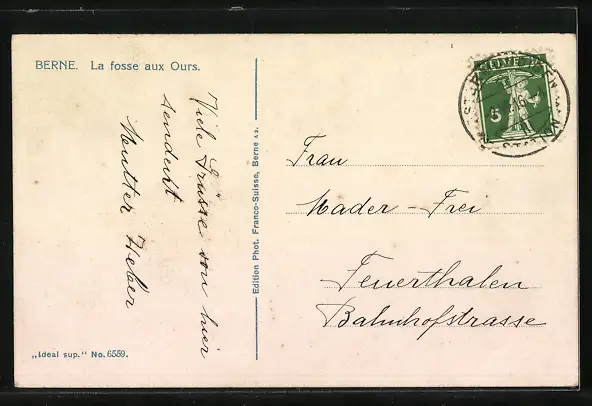 BERNE. La fosse aux Ours.
Viele Grüsse von hier
sendet
Mutter Heber
„Ideal sup." No. 6559.
Edition Phot. Franco-Suisse, Berne
HELVETIA
5
Frau
Mader - Frei
Feuerthalen
Bahnhofstrasse